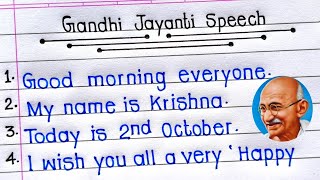 Gandhi Jayanti Speech
1. Good morning everyone.
2. My name is Krishna.
3. Today is 2nd October.
4. I wish you all a very 'Happy